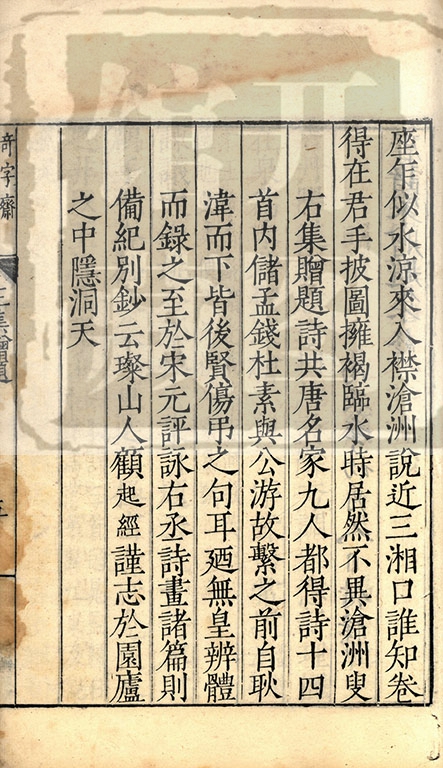 座乍似水涼來入襟滄洲說近三湘口誰知卷
得在君手披圖擁褐臨水時居然不異滄洲叟
右集贈題詩共唐名家九人都得詩十四
首內儲孟錢杜素與公游故繫之前自耿
湋而下皆後賢傷弔之句耳廼無皇辨體
而錄之至於宋元評詠右丞詩畫諸篇則
備紀別鈔云璨山人顧起經謹志於園廬
之中隱洞天
奇字齋